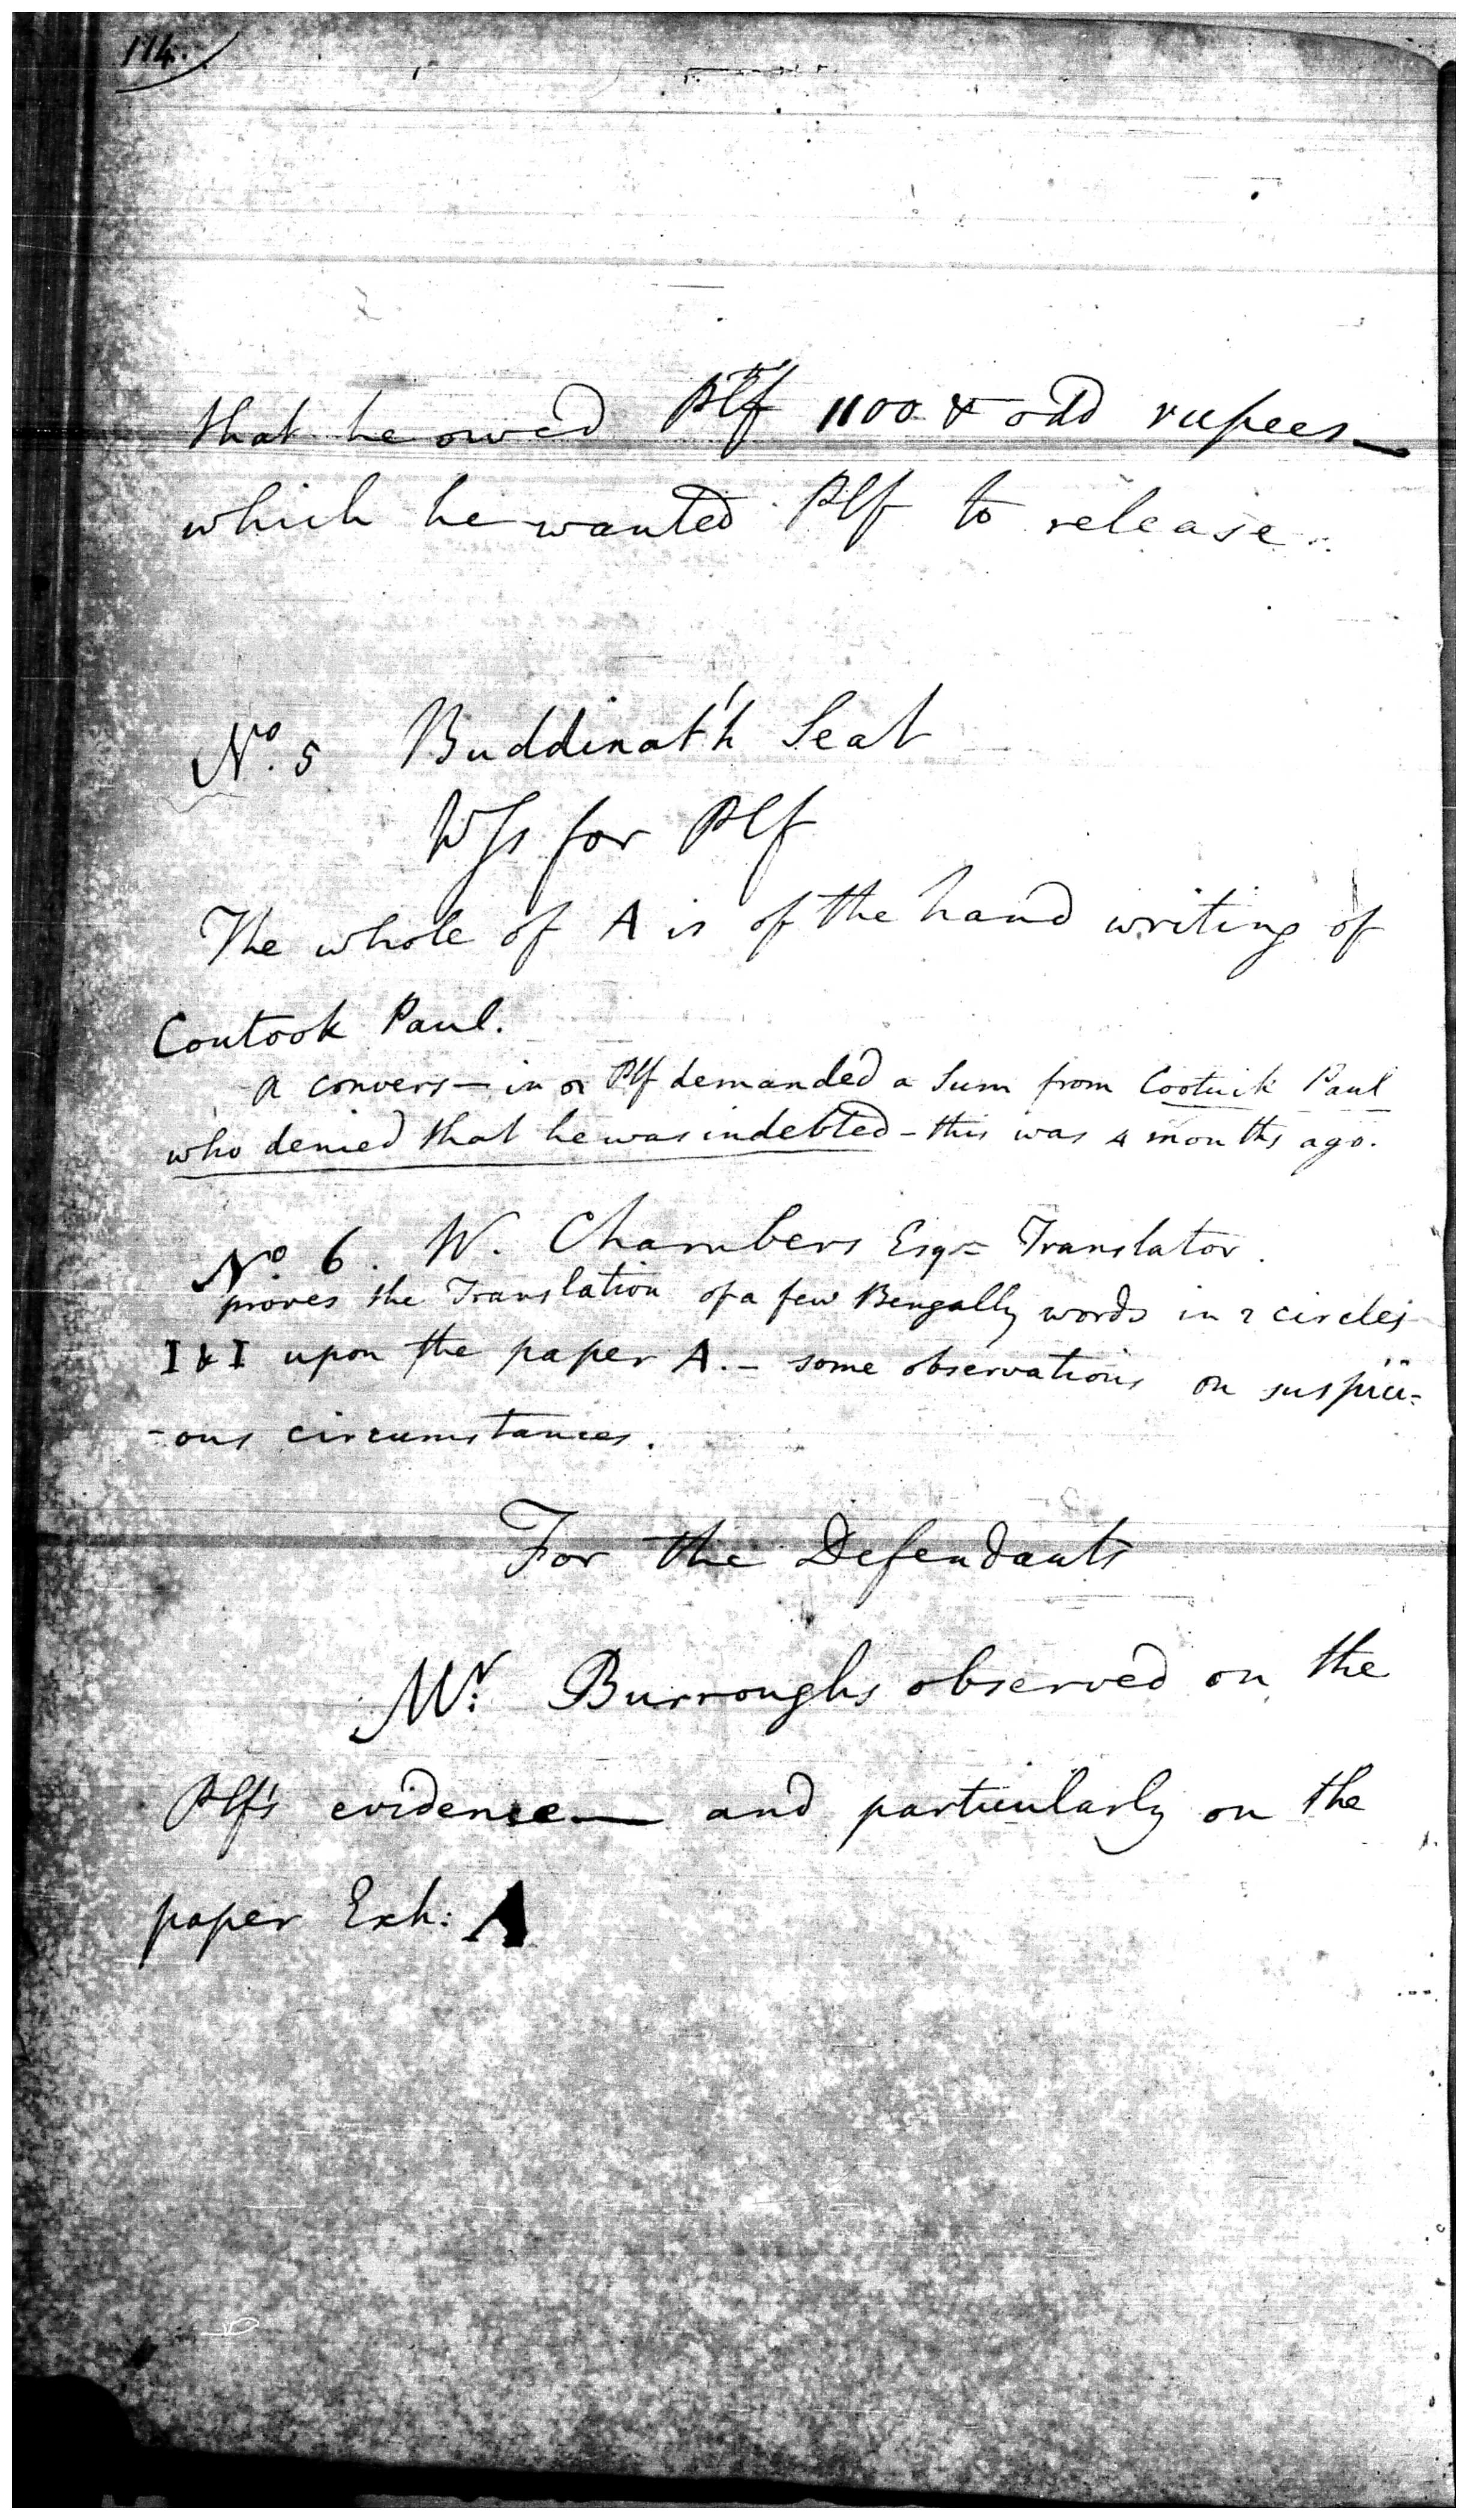 114.
that he owed Plf 1100 & odd rupees
which he wanted Plf to release.
No. 5 Buddinat'h Seat
Wss for Plf
The whole of A is of the hand writing of
Coutook Paul.
A convers— in Plf demanded a Sum from Cootuik Paul
who denied that he was indebted - this was 4 months ago.
No. 6. W. Chambers Esqr Translator.
proves the Translation of a few Bengally words in 2 circles
I & I upon the paper A. - some observations on suspici-
-ous circumstances.
For the Defendants
Mr. Burroughs observed on the
Plf's evidence — and particularly on the
paper Exh: A